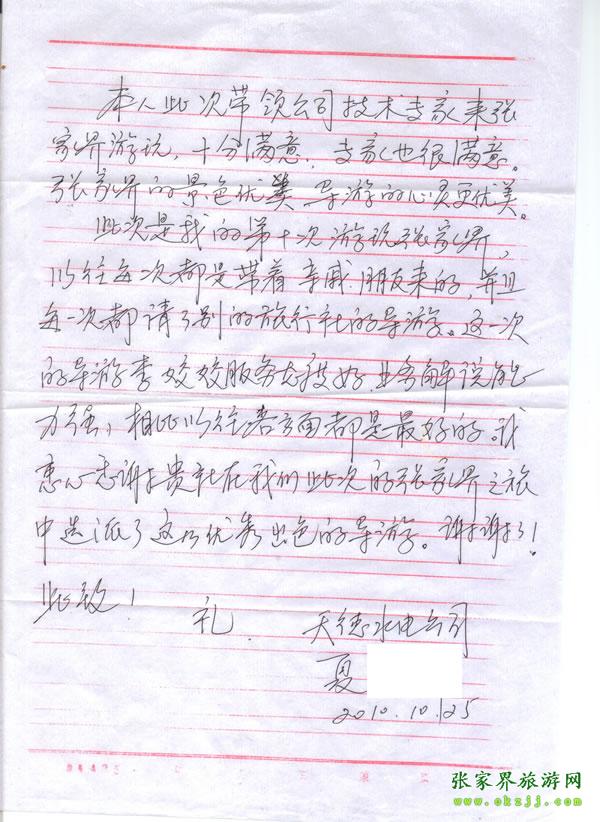 本人此次带领公司技术专家来张
家界游玩，十分满意，专家也很满意。
张家界的景色优美 导游的心灵更优美。
此次是我的第十次游玩张家界，
以往每次都是带着亲戚朋友来的，并且
每一次都请了别的旅行社的导游。这一次
的导游李姣姣服务态度好业务解说能
力强，相比以往各方面都是最好的。我
衷心感谢贵社在我们此次的张家界之旅
中选派了这么优秀出色的导游。谢谢了！
此致！
礼
天德水电公司
夏
2010.10.25
张家界旅游网
www.okzjj.com